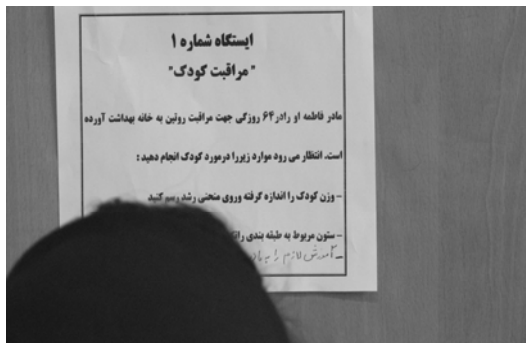 ایستگاه شماره ۱
"مراقبت کودک"
مادر فاطمه او رادر ۶۴ روزگی جهت مراقبت روتین به خانه بهداشت آورده
است. انتظار می رود موارد زیررا درمورد کودک انجام دهید :
- وزن کودک را اندازه گرفته وروی منحنی رشد رسم کنید
- ستون مربوط به طبقه بندی را
- آموزش لازم را به